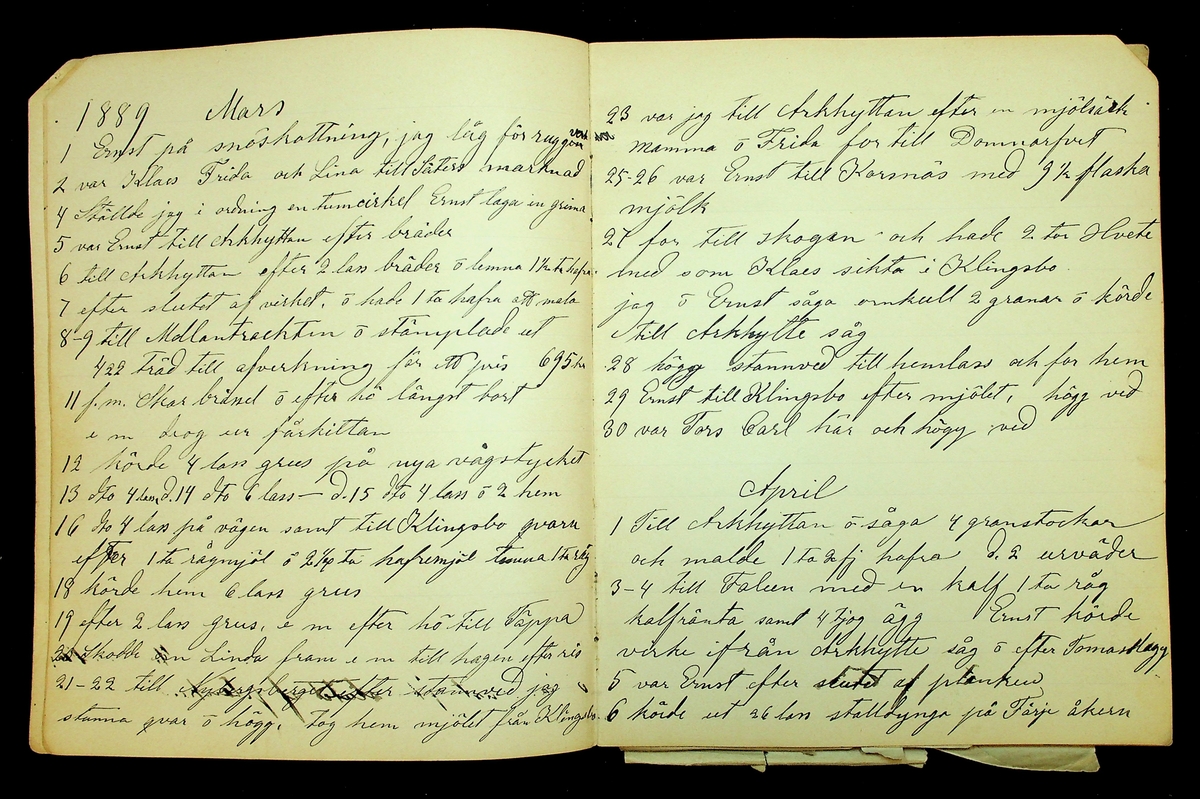 1889 Mars
1 Ernst på snöskottning, jag låg för ryggen
2 var Klaes Frida och Lina till Säters marknad
4 Ställde jag i ordning en tumcirkel Ernst laga en grima
5 var Ernst till Arkhyttan efter bräder
6 till Arkhyttan efter 2 lass bräder ö lemna 1½ ta hafra
7 efter slutet af virket, ö hade 1 ta hafra att mala
8-9 till ö stämplade ut
422 träd till afverkning för ett pris 695 kr
11 f.m. Skar brånel ö efter hö längst bort
e m drog ur fårkittan
12 körde 4 lass grus på nya vägstycket
13 dto 4 lass, d. 14 dto 6 lass — d. 15 dto 4 lass ö 2 hem
16 dto 4 lass på vägen samt till Klingsbo qvarn
efter 1 ta rågmjöl ö ta hafremjöl 1 ta råg
18 körde hem 6 lass grus
19 efter 2 lass grus, e m efter hö till Täppa
Skodde Linda fram e m till hagen efter ris
21-22 till stamved jag
stanna qvar ö högg. Tog hem mjölet från Klingsbo
23 var jag till Arkhyttan efter en mjölsäck
mamma ö Frida for till Domnarfvet
25-26 var Ernst till Korsnäs med 9½ flaska
mjölk
27 for till skogen och hade 2 tor Hvete
med som Klaes sikta i Klingsbo.
jag ö Ernst såga omkull 2 granar ö körde
till Arkhytte såg
28 högg stannved till hemlass och for hem
29 Ernst till Klingsbo efter mjölet, högg ved
30 var Tors Carl här och högg ved
April
1 Till Arkhyttan ö såga 4 granstockar
och malde 1 ta 2 fj hafra d. 2 urväder
3-4 till Falun med en kalf 1 ta råg
kalfränta samt 4 tjog ägg Ernst körde
virke ifrån Arkhytte såg ö efter Tomas
5 var Ernst efter slutet af planken
6 körde ut 26 lass stalldynga på Färje åkern